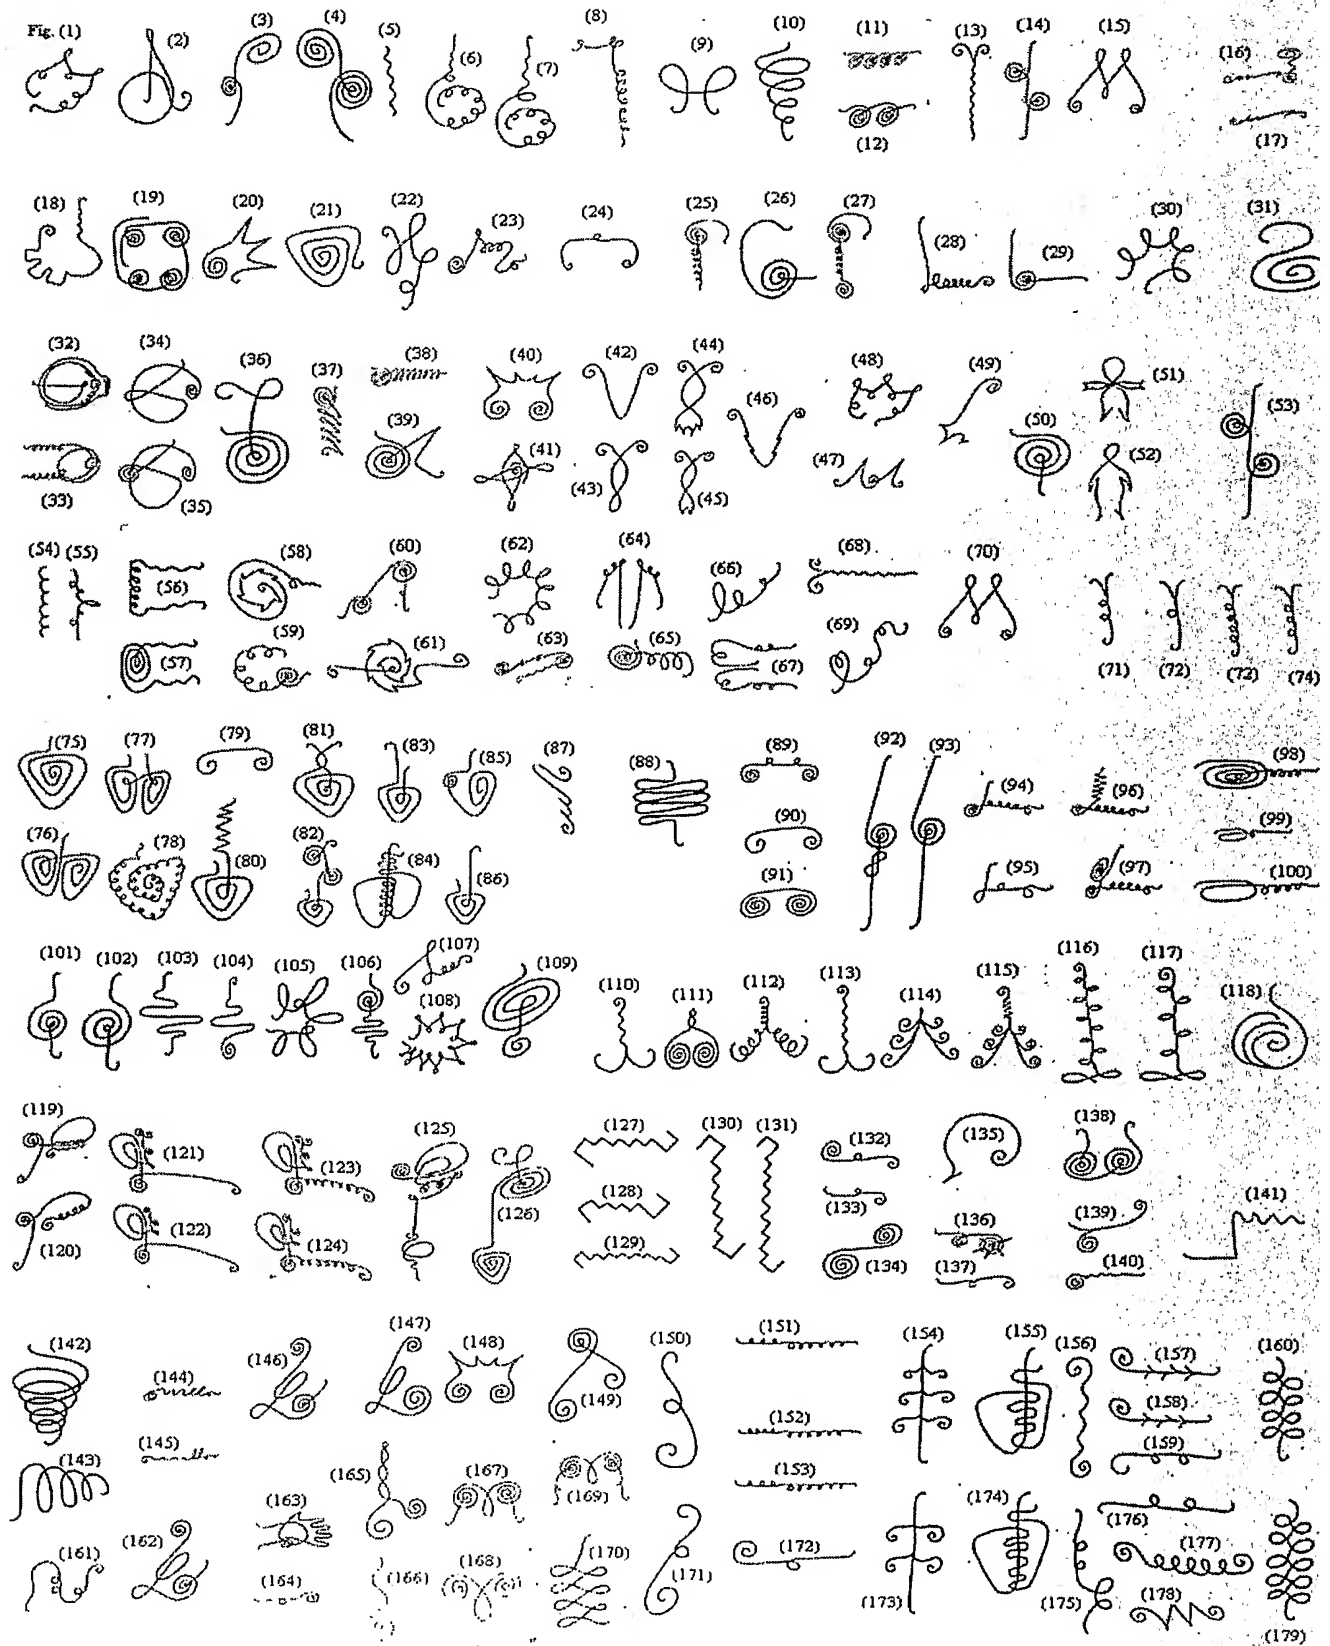 Fig. (1) (2) (3) (4) (5) (6) (7) (8) (9) (10) (11) (12) (13) (14) (15) (16) (17)
(18) (19) (20) (21) (22) (23) (24) (25) (26) (27) (28) (29) (30) (31)
(32) (33) (34) (35) (36) (37) (38) (39) (40) (41) (42) (43) (44) (45) (46) (47) (48) (49) (50) (51) (52) (53)
(54) (55) (56) (57) (58) (59) (60) (61) (62) (63) (64) (65) (66) (67) (68) (69) (70) (71) (72) (72) (74)
(75) (76) (77) (78) (79) (80) (81) (82) (83) (84) (85) (86) (87) (88) (89) (90) (91) (92) (93) (94) (95) (96) (97) (98) (99) (100)
(101) (102) (103) (104) (105) (106) (107) (108) (109) (110) (111) (112) (113) (114) (115) (116) (117) (118)
(119) (120) (121) (122) (123) (124) (125) (126) (127) (128) (129) (130) (131) (132) (133) (134) (135) (136) (137) (138) (139) (140) (141)
(142) (143) (144) (145) (146) (147) (148) (149) (150) (151) (152) (153) (154) (155) (156) (157) (158) (159) (160)
(161) (162) (163) (164) (165) (166) (167) (168) (169) (170) (171) (172) (173) (174) (175) (176) (177) (178) (179)